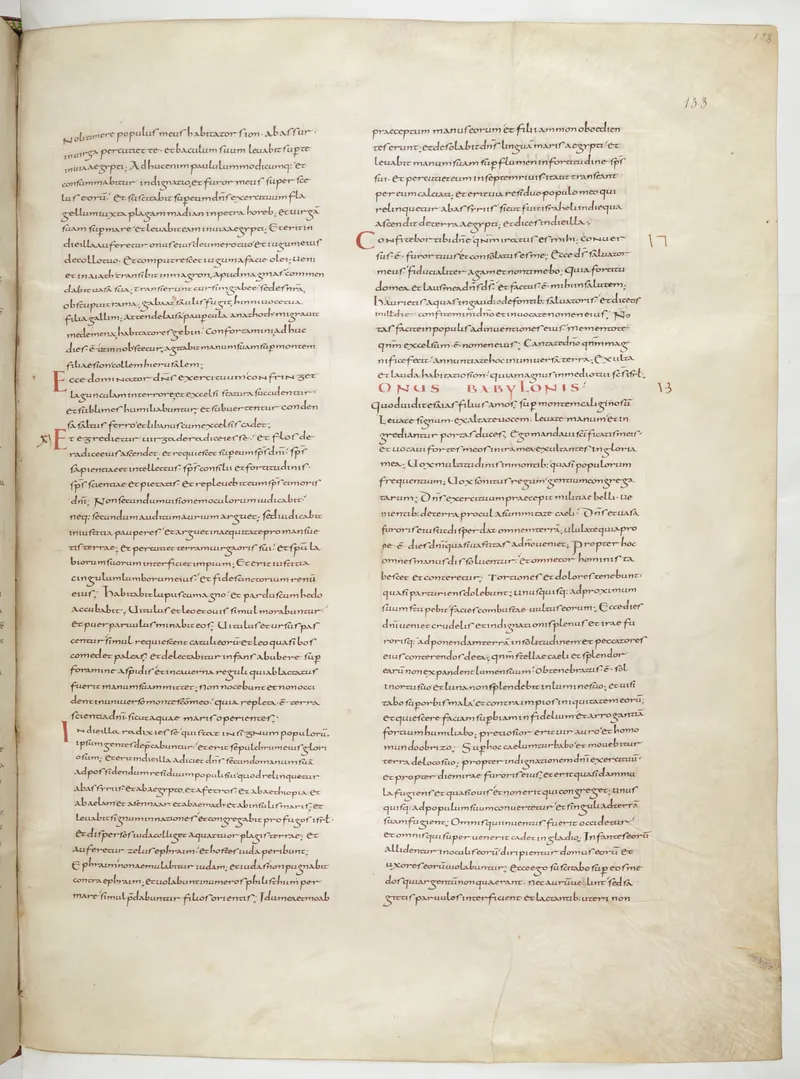 133
Noli timere populus meus habitator sion. ab assur.
in uirga percutiet te. et baculum suum leuabit sup te
in uia aegypti; Adhuc enim paululum modicumq; et
consummabitur indignatio et furor meus super sce
lus eorū; et suscitabit sup eum dñs exercituum fla
gellum iuxta plagam madian in petra horeb; et uirgā
suam sup mare. et leuabit eam in uia aegypti; Et erit in
die illa auferetur onus eius de umero tuo et iugum eius
de collo tuo. Et computrescet iugum a facie olei; ueni
et in aiath transibit in magron. apud magmas commen
dabit uasa sua; transierunt cursim gabee sedes nrā.
obstupuit rama. gabaa saulis fugit; hinni uoce tua
filia gallim; Attende laisa paupcula anathoth migrauit
medemena; habitatores gebim. Confortamini; adhuc
dies ē. ut in nob stetur; agitabit manum suam sup montem
filiae sion collem hierusalem;
Ecce dominator dñs exercituum confringet
lagunculam in terrore. et excelsi statura succidentur.
et sublimes humiliabuntur; et subuertentur conden
sa saltus ferro et libanus cum excelsis cadet;
XI Et egredietur uirga de radice iesse. et flos de
radice eius ascendet. et requiescet sup eum sps dñi. sps
sapientiae et intellectus. sps consilii et fortitudinis.
sps scientiae et pietatis. et replebit eum sps timoris
dñi; Non secundum uisionem oculorum iudicabit.
neq; secundum auditum aurium arguet; sed iudicabit
in iustitia pauperes. et arguet in aequitate pro mansue
tis terrae; et percutiet terram uirga oris sui. et spū la
biorum suorum interficiet impium; Et erit iustitia
cingulum lumborum eius. et fides cinctorium renū
eius; Habitabit lupus cum agno. et pardus cum hedo
accubabit. Uitulus et leo et ouis simul morabuntur.
et puer paruulus minabit eos; Uitulus et ursus pas
centur simul requiescent catuli eorū et leo quasi bos
comedet paleas; et delectabitur infans ab ubere sup
foramine aspidis et in cauerna reguli qui ablactatus
fuerit manum suam mittet; non nocebunt et non occi
dent in uniuerso monte sc̄o meo. quia repleta ē terra
scientia dñi. sicut aquae maris operientes;
In die illa radix iesse qui stat in signum populorū.
ipsum gentes dep̄cabuntur. et erit sepulchrum eius glori
osum; et erit in die illa adiciet dñs secundo manum suā
ad possidendum residuum populi sui quod relinquetur
ab assyriis. et ab aegypto. et a fetros. et ab aethiopia et
ab aelam. et a sennaar. et ab aemath. et ab insulis maris; et
leuabit signum in nationes. et congregabit profugos isrl.
et dispersos iuda colliget a quattuor plagis terrae; et
auferetur zelus ephraim. et hostes iuda peribunt;
Ephraim non aemulabitur iudam; et iudas non pugnabit
contra ephraim; et uolabunt in umeros philisthim per
mare simul p̄dabuntur filios orientis; Idumea et moab
praeceptum manus eorum et filii ammon oboedien
tes erunt; et desolabit dñs linguā maris aegypti. et
leuabit manum suam sup flumen in fortitudine sps
sui. et percutiet eum in septem riuis ita ut transeant
per eum calciati; et erit uia residuo populo meo qui
relinquetur ab assyriis sicut fuit israheli in die qua
ascendit de terra aegypti; et dices in die illa;
12
Confitebor tibi dñe qnm iratus es mihi; conuer
sus ē furor tuus et consolatus es me; Ecce ds saluator
meus fiducialiter agam et non timebo; Quia fortitu
do mea et laus mea dñs ds. et factus ē mihi in salutem;
haurietis aquas in gaudio de fontib; saluatoris et dicetis
in illa die. confitemini dño et inuocate nomen eius; No
tas facite in populis adinuentiones eius mementote
qnm excelsum ē nomen eius; Cantate dño qnm mag
nifice fecit. annuntiate hoc in uniuersa terra; Exulta
et lauda habitatio sion. quia magnus in medio tui sc̄s isrl;
13
ONUS BABYLONIS.
Quod uidit esaias filius amos; sup montem caliginosū
leuate signum. exaltate uocem. leuate manum et in
grediantur portas duces; Ego mandaui sc̄ificatis meis.
et uocaui fortes meos in ira mea exultantes in gloria
mea; Uox multitudinis in montib; quasi populorum
frequentium; Uox sonitus regum gentium congrega
tarum; Dñs exercituum praecepit militiae belli. ue
nientib; de terra procul a summitate caeli. Dñs et uasa
furoris eius ut disperdat omnem terrā; ululate quia pro
pe ē dies dñi quasi uastitas a dño ueniet; Propter hoc
omnes manus dissoluentur. et omne cor hominis ta
bescet et conteretur; Tortiones et dolores tenebunt.
quasi parturiens dolebunt; unusquisq; ad proximum
suum stupebit. facies combustae uultus eorum; Ecce dies
dñi ueniet crudelis et indignationis plenus et irae fu
rorisq; ad ponendam terrā in solitudinem et peccatores
eius conterendos de ea; qnm stellae caeli et splendor
earū non expandent lumen suum. Obtenebratus ē sol
in ortu suo et luna non splendebit in lumine suo; et uisi
tabo sup orbis mala et contra impios iniquitatem eorū;
et quiescere faciam supbiam infidelium et arrogantiā
fortium humiliabo; pretiosior erit uir auro et homo
mundo obrizo; Sup hoc caelum turbabo et mouebitur
terra de loco suo; propter indignationem dñi exercituū.
et propter diem irae furoris eius; et erit quasi dammu
la fugiens et quasi ouis. et non erit qui congreget; unus
quisq; ad populum suum conuertetur et singuli ad terrā
suam fugient; Omnis qui inuentus fuerit occidetur.
et omnis qui superuenerit cadet in gladio; Infantes eorū
allidentur in oculis eorū diripientur domus eorū et
uxores eorū uiolabuntur; Ecce ego suscitabo sup eos me
dos qui argentū non quaerant. nec aurū uelint sed sa
gittis paruulos interficient et lactantib; uteri non